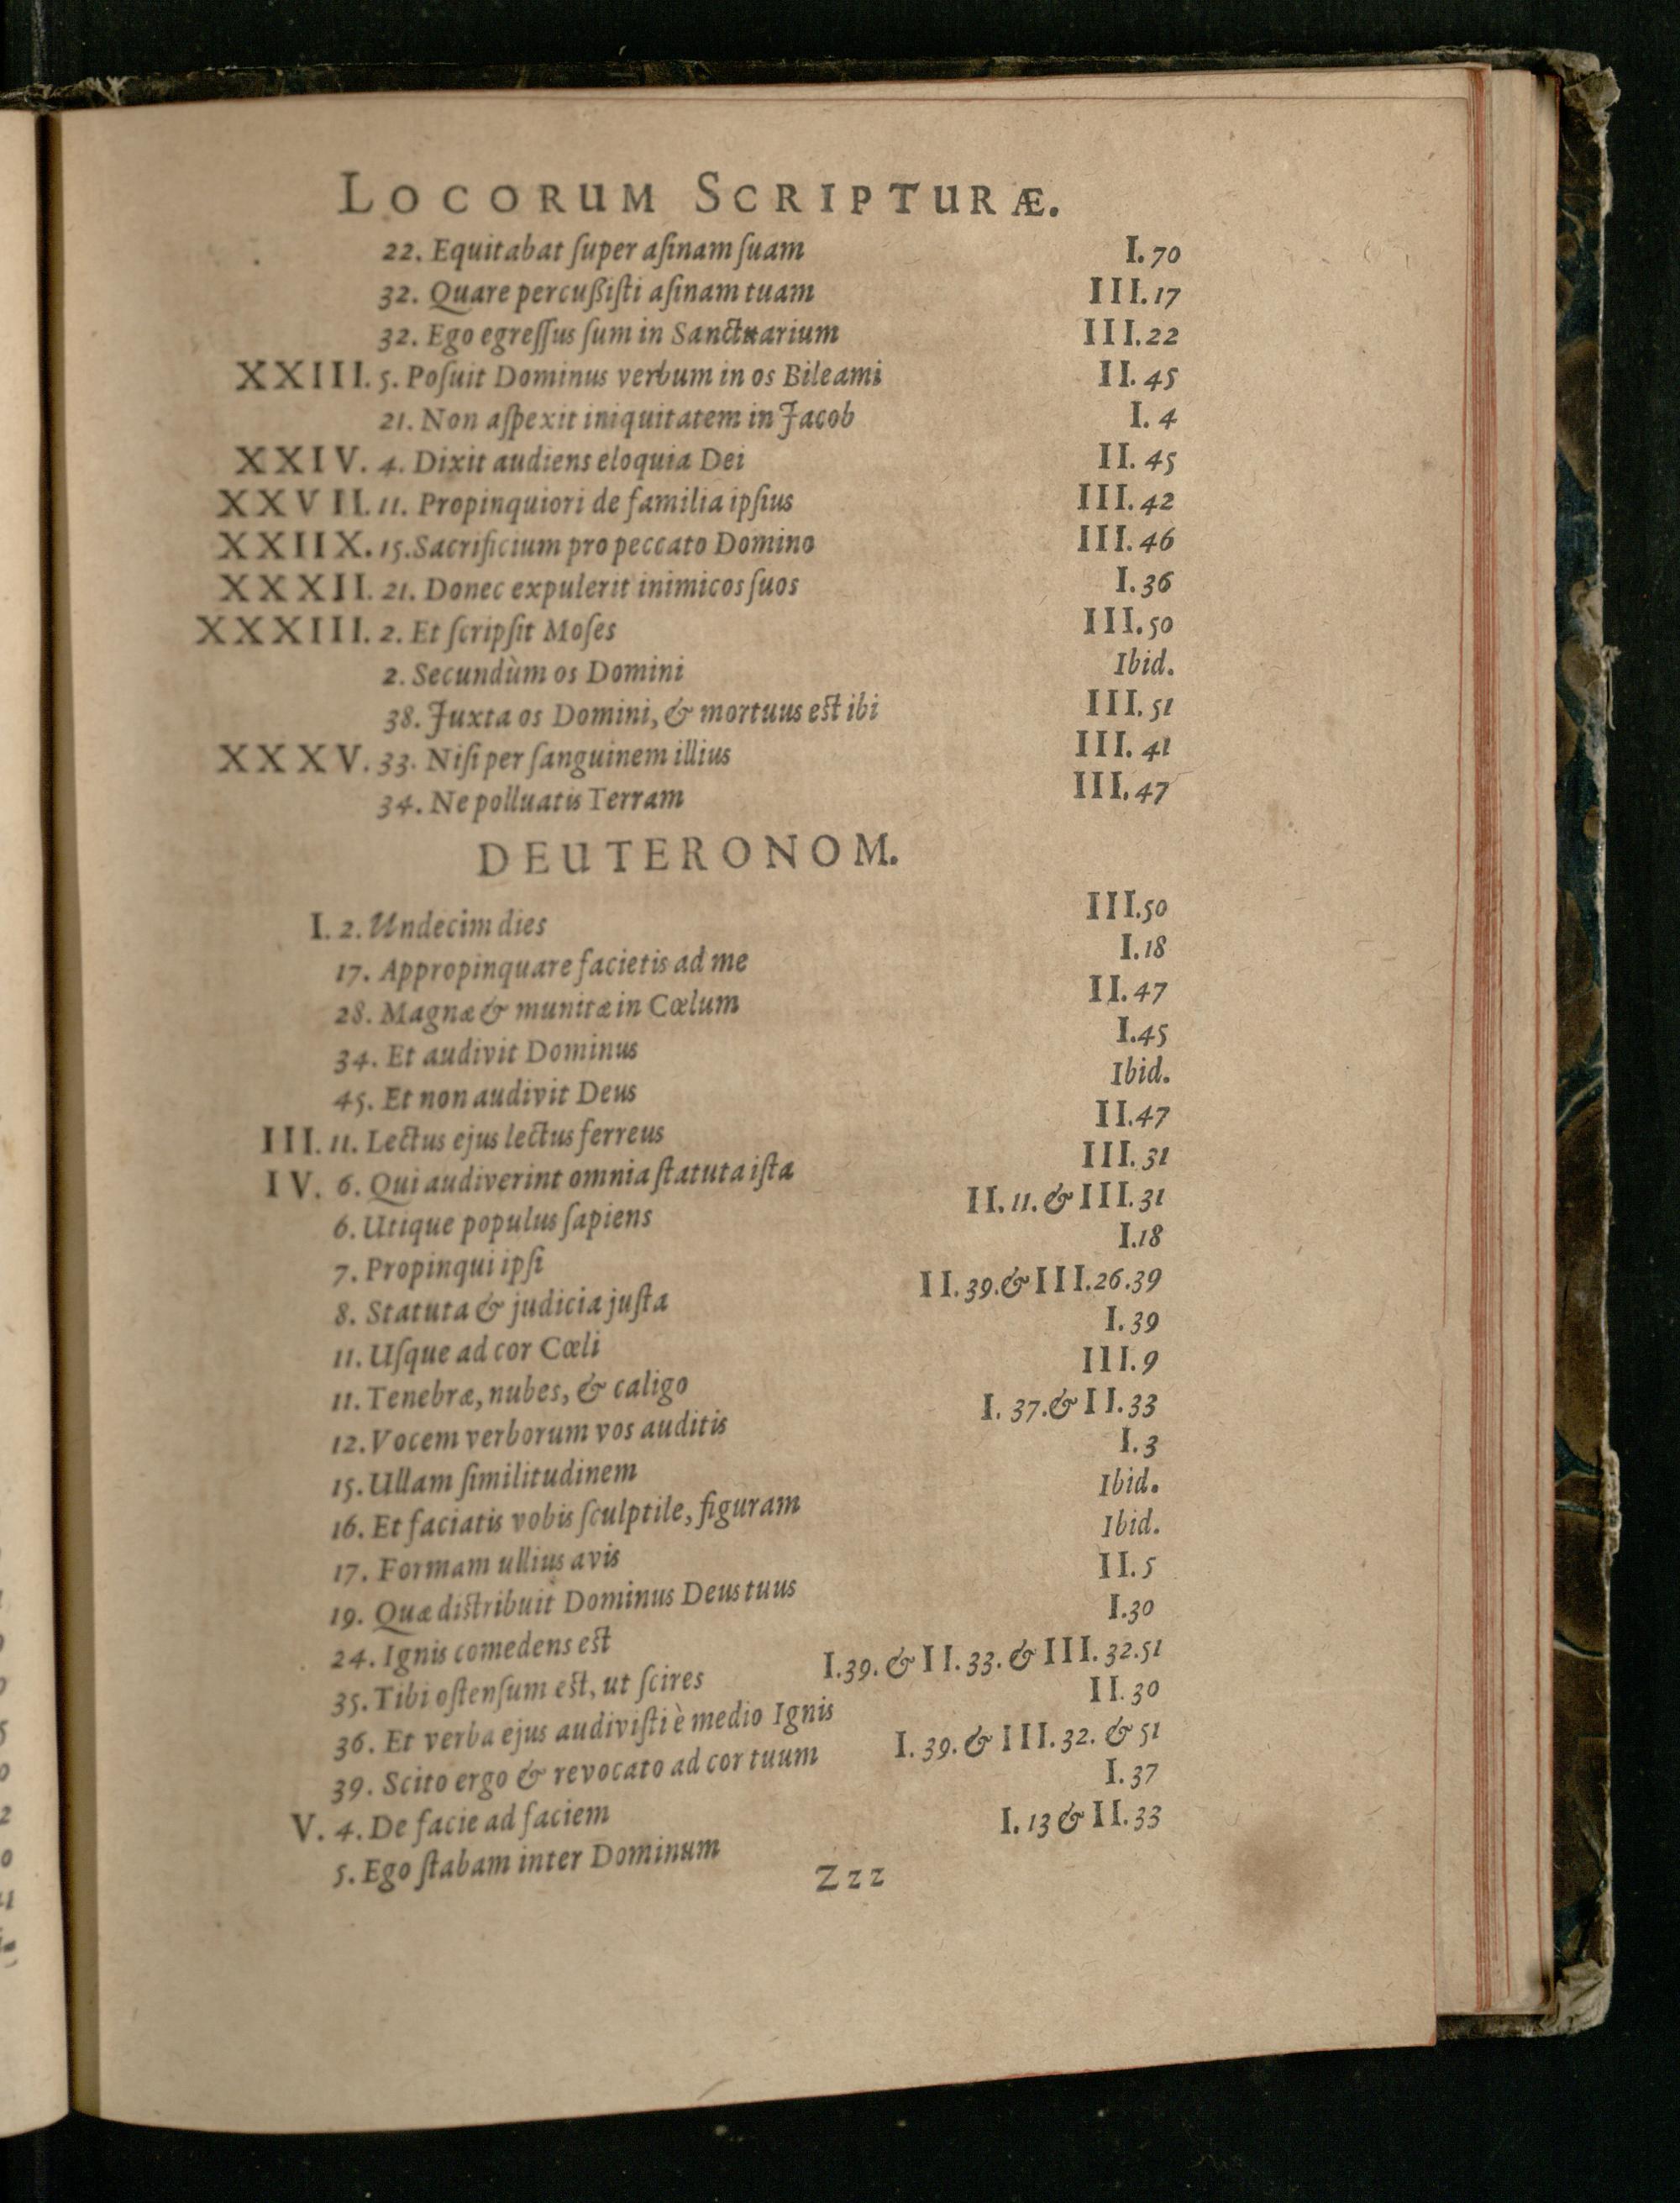 LOCORUM SCRIPTURÆ.
22. Equitabat ſuper aſinam ſuam I. 70
32. Quare percußiſti aſinam tuam III. 17
32. Ego egreſſus ſum in Sanctuarium III. 22
XXIII. 5. Poſuit Dominus verbum in os Bileami II. 45
21. Non aſpexit iniquitatem in Jacob I. 4
XXIV. 4. Dixit audiens eloquia Dei II. 45
XXVII. 11. Propinquiori de familia ipſius III. 42
XXIIX. 15. Sacrificium pro peccato Domino III. 46
XXXII. 21. Donec expulerit inimicos ſuos I. 36
XXXIII. 2. Et ſcripſit Moſes III. 50
2. Secundùm os Domini Ibid.
38. Juxta os Domini, & mortuus est ibi III. 51
XXXV. 33. Niſi per ſanguinem illius III. 41
34. Ne polluatis Terram III. 47
DEUTERONOM.
I. 2. Undecim dies III. 50
17. Appropinquare facietis ad me I. 18
28. Magnæ & munitæ in Cœlum II. 47
34. Et audivit Dominus I. 45
45. Et non audivit Deus Ibid.
III. 11. Lectus ejus lectus ferreus II. 47
IV. 6. Qui audiverint omnia ſtatuta iſta III. 31
6. Utique populus ſapiens II. 11. & III. 31
7. Propinqui ipſi I. 18
8. Statuta & judicia juſta II. 39. & III. 26. 39
11. Uſque ad cor Cœli I. 39
11. Tenebræ, nubes, & caligo III. 9
12. Vocem verborum vos auditis I. 37. & II. 33
15. Ullam ſimilitudinem I. 3
16. Et faciatis vobis ſculptile, figuram Ibid.
17. Formam ullius avis Ibid.
19. Quæ distribuit Dominus Deus tuus II. 5
24. Ignis comedens est I. 30
35. Tibi oſtenſum est, ut ſcires I. 39. & II. 33. & III. 32. 51
36. Et verba ejus audiviſti è medio Ignis II. 30
39. Scito ergo & revocato ad cor tuum I. 39. & III. 32. & 51
V. 4. De facie ad faciem I. 37
5. Ego ſtabam inter Dominum I. 13 & II. 33
Zzz